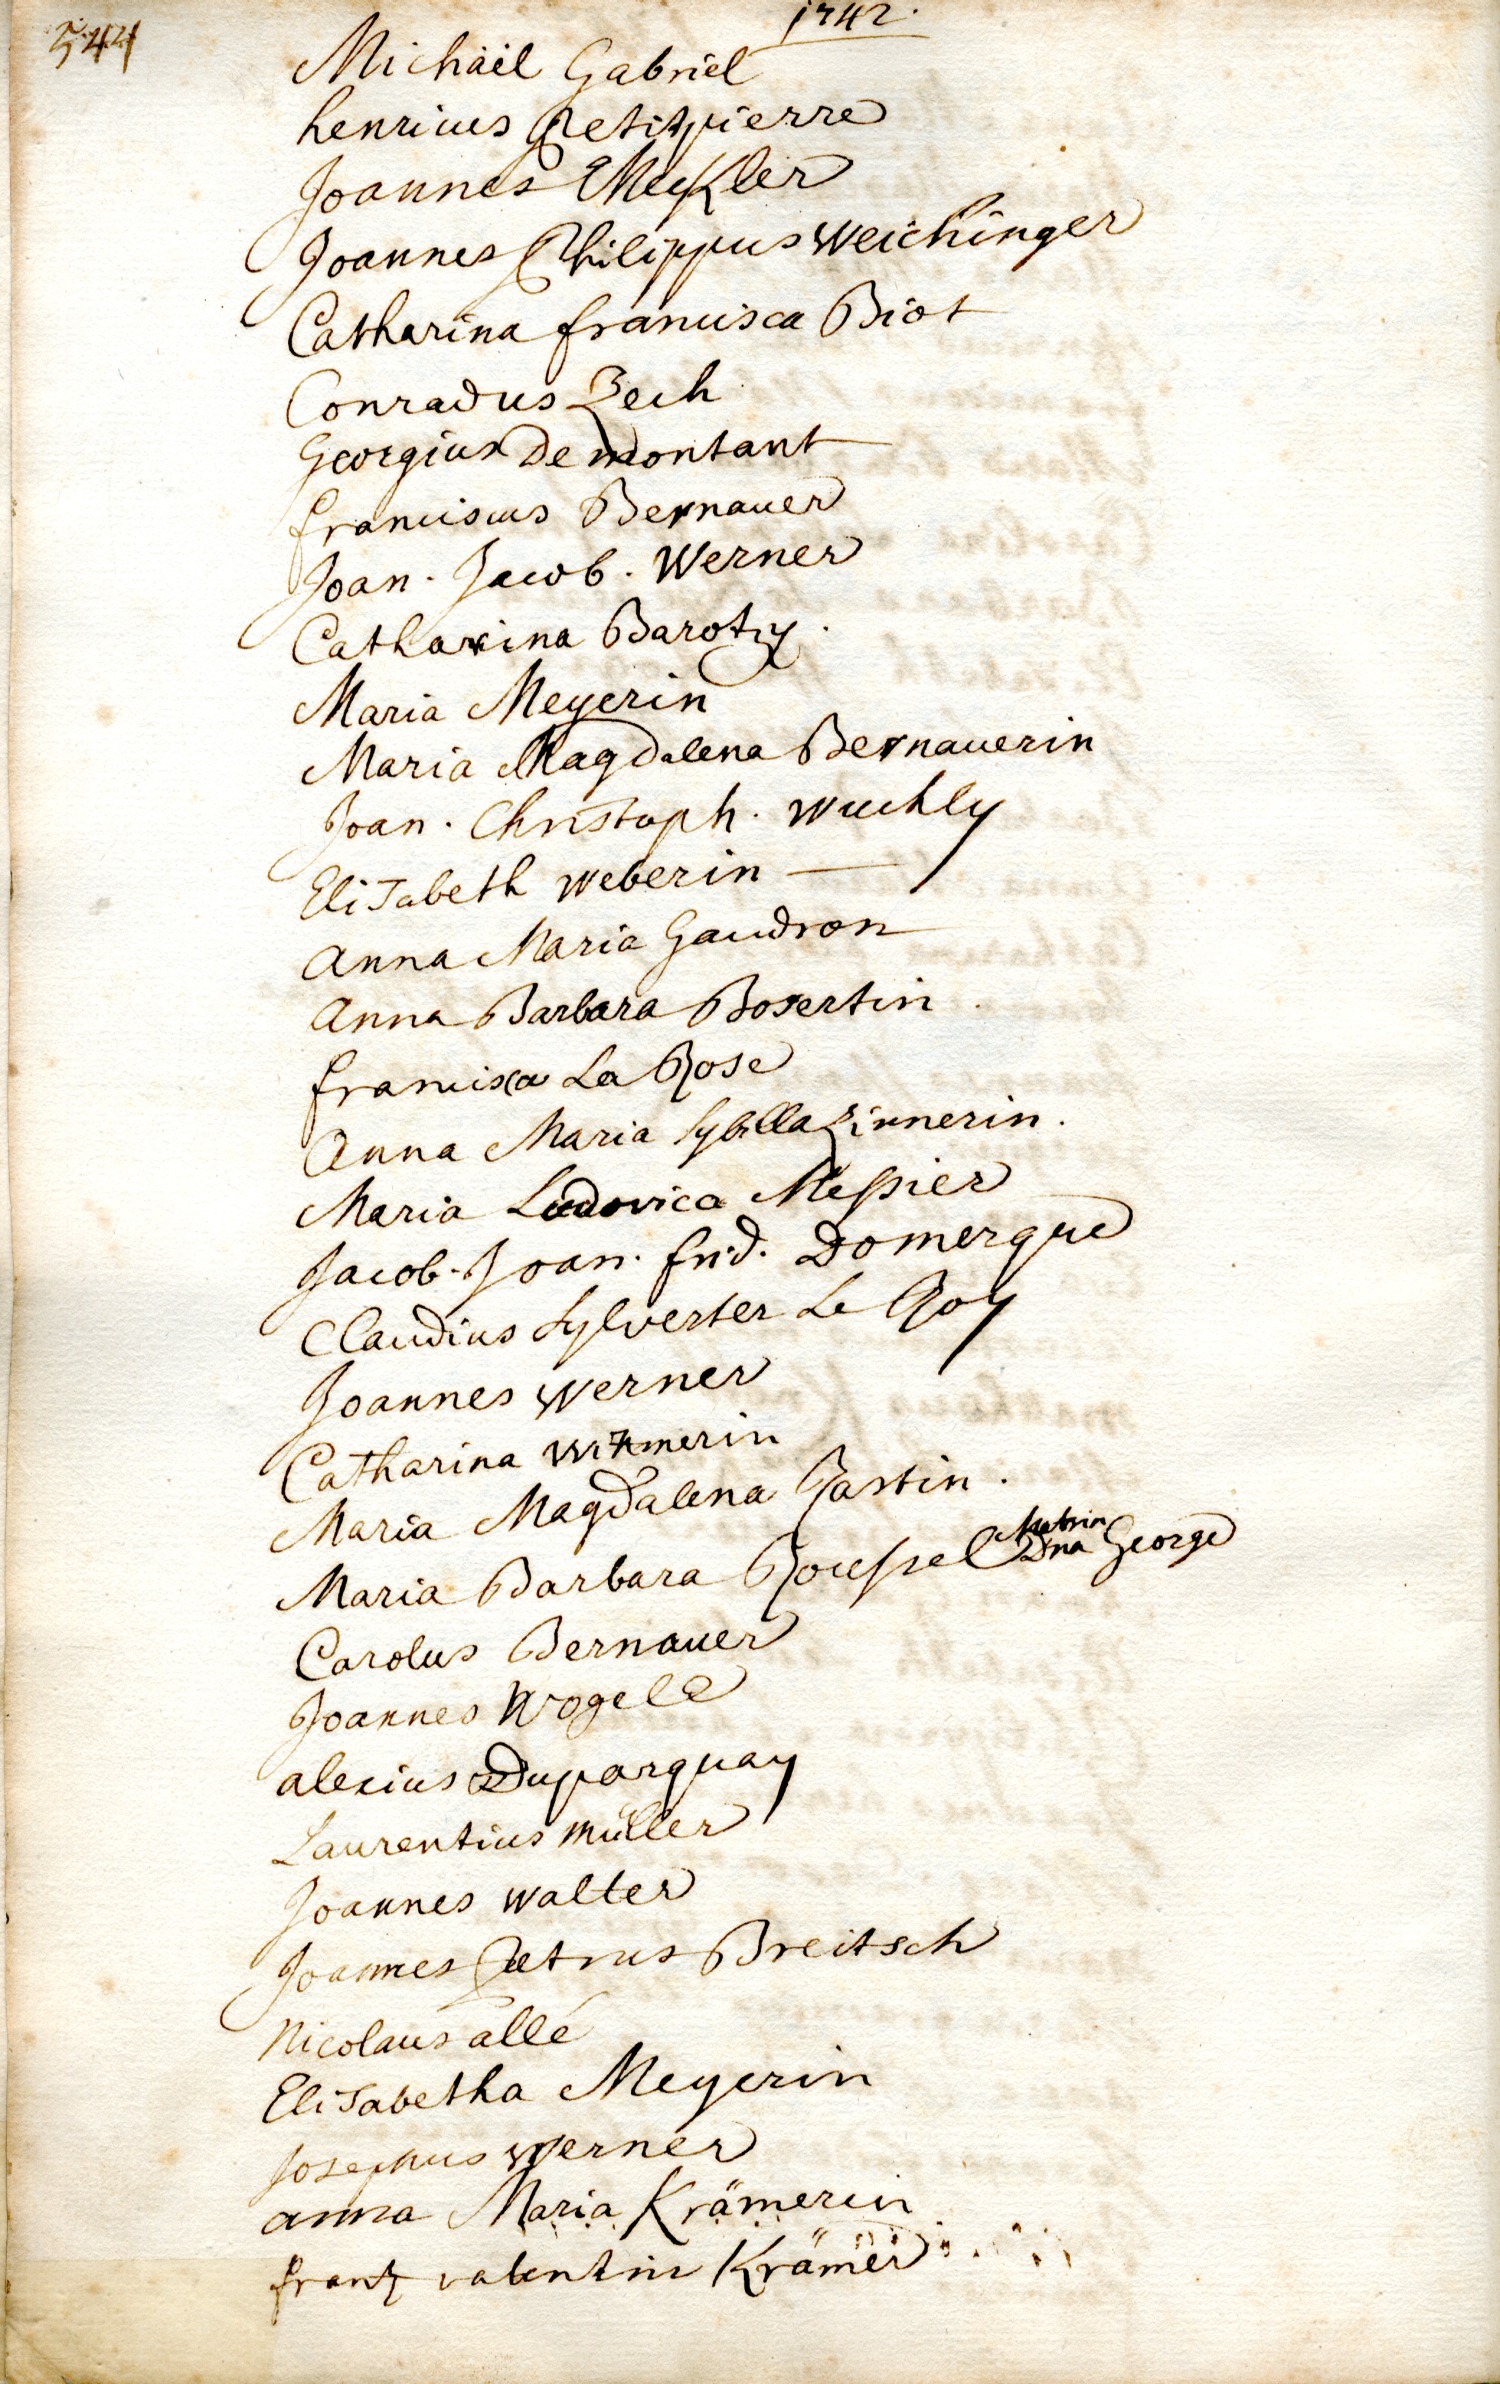 544
1742.
Michaël Gabriel
henricus Petitpierre
Joannes Meckler
Joannes Philippus Weichinger
Catharina francisca Biot
Conradus Zech
Georgius De montant
franciscus Bernauer
Joan. Jacob. Werner
Catharina Barotzy.
Maria Meyerin
Maria Magdalena Bernauerin
Joan. Christoph. Wuchly
Elisabeth Weberin —
Anna Maria Gaudron
Anna Barbara Bosertin
francisca La Rose
Anna Maria Sybilla Zinnerin.
Maria Ludovica Messier
Jacob. Joan. frid. Domergue
Claudius Sylvester Le Roy
Joannes Werner
Catharina
Maria Magdalena Rastin.
Maria Barbara Roussel Matrin Dna George
Carolus Bernauer
Joannes Wogele
alexius Duparquay
Laurentius Müller
Joannes Walter
Joannes Petrus Breitsch
Nicolaus allé
Elisabetha Meyerin
Josephus Werner
anna Maria Krämerin
frantz valentin Krämer